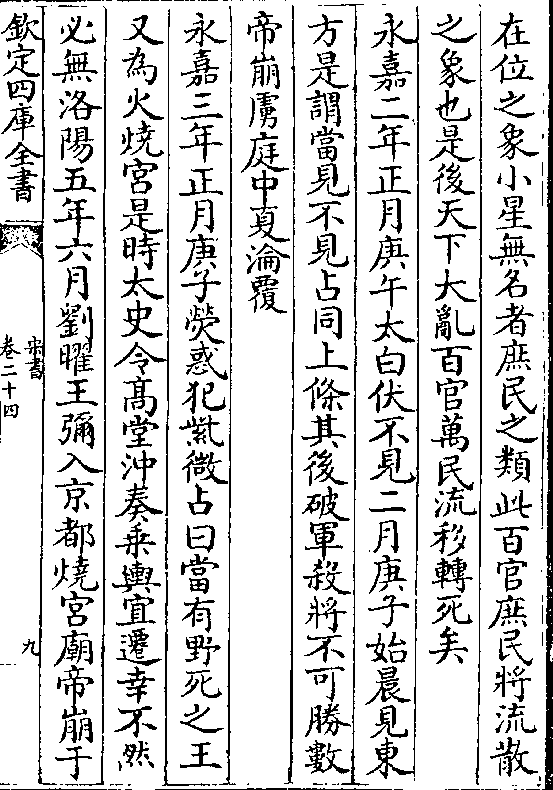 在位之象小星無名者庶民之類此百官庶民將流散
之象也是後天下大亂百官萬民流移轉死矣
永嘉二年正月庚午太白伏不見二月庚子始晨見東
方是謂當見不見占同上條其後破軍殺將不可勝數
帝崩虜庭中夏淪覆
永嘉三年正月庚子熒惑犯紫微占曰當有野死之王
又為火燒宮是時太史令髙堂沖奏乗輿宜遷幸不然
必無洛陽五年六月劉曜王彌入京都燒宮廟帝崩于
欽定四庫全書
宋書
卷二十四
九